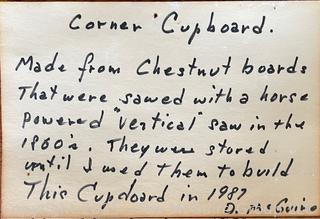 Corner Cupboard.
Made from Chestnut boards
That were sawed with a horse
Powered "Vertical" saw in the
1860's. They were stored
until I used them to build
This Cupdoard in 1987
D. McGuire